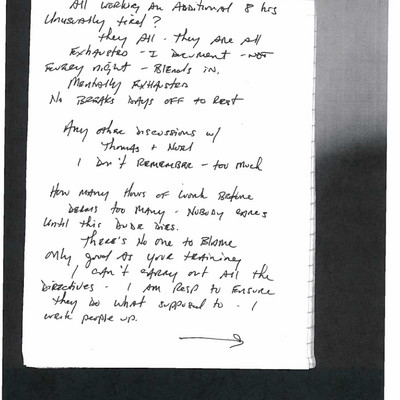 All working an Additional 8 hrs
Unusually tired?
they All - they are all
Exhausted - I Document - not
Every night - Blends in.
Mentally Exhausted
No Breaks Days off to Rest
Any other Discussions w/
Thomas + Noel
I Don't Remember - too much
How Many Hours of work Before
Deems too Many - Nobody cares
Until this Dude Dies.
There's No one to Blame
only good as your training
I can't carry out All the
Directives - I am Resp to Ensure
they Do what supposed to - I
wake people up.